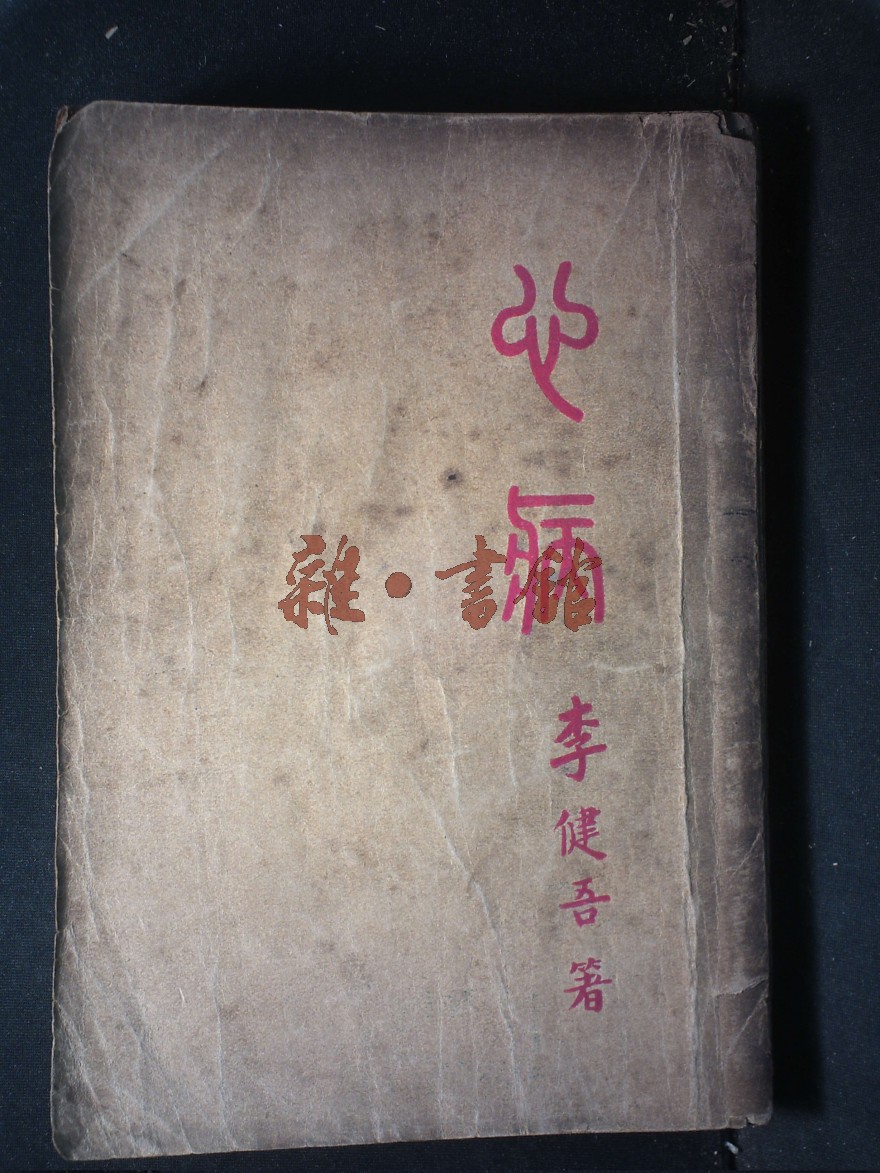 心病
李健吾著
雜·書館